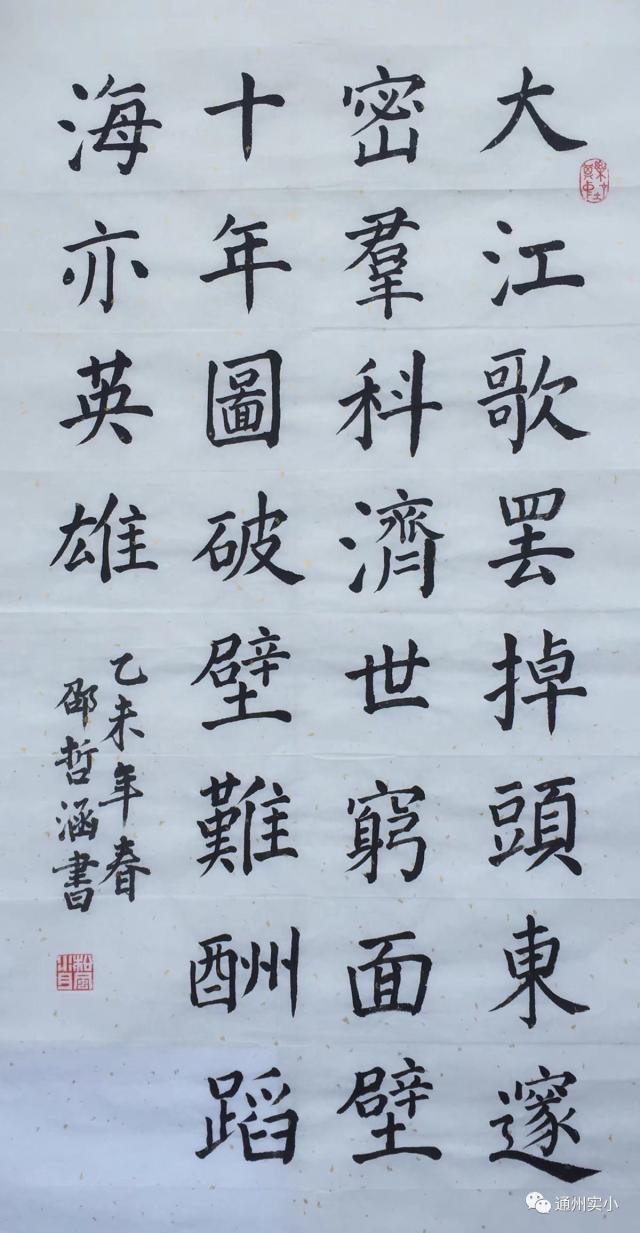 大江歌罷掉頭東邃
密羣科濟世窮面壁
十年圖破壁難酬蹈
海亦英雄
乙未年春
邵哲涵書
通州实小